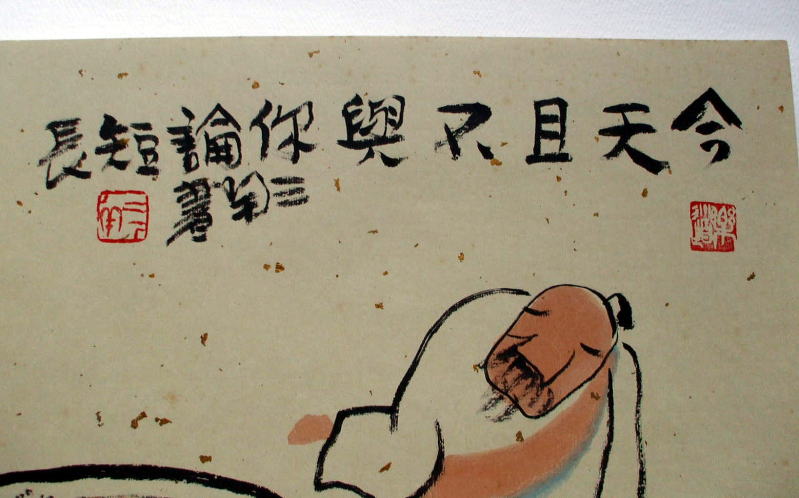 今天且不與你論短長